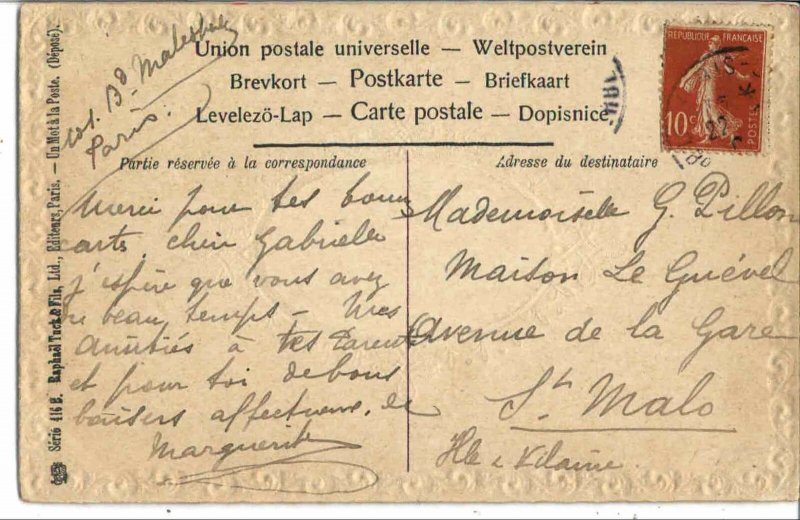 101. Bd Malesherbes
Paris.
Union postale universelle — Weltpostverein
Brevkort — Postkarte — Briefkaart
Levelezö-Lap — Carte postale — Dopisnice
Partie réservée à la correspondance
Merci pour tes bonnes
carts, chère Gabrielle
j'espère que vous avez
du beau temps — Mes
amitiés à tes Parents
et pour toi de bons
baisers affectueux. de
Marguerite
Adresse du destinataire
Mademoiselle G. Pillon
Maison Le Guével
Avenue de la Gare
St. Malo
Ille & Vilaine.
REPUBLIQUE FRANÇAISE
10c
POSTES
22
Série 416 B. Raphael Tuck & Fils, Ltd., Editeurs, Paris. — Un Mot à la Poste. (Déposé).